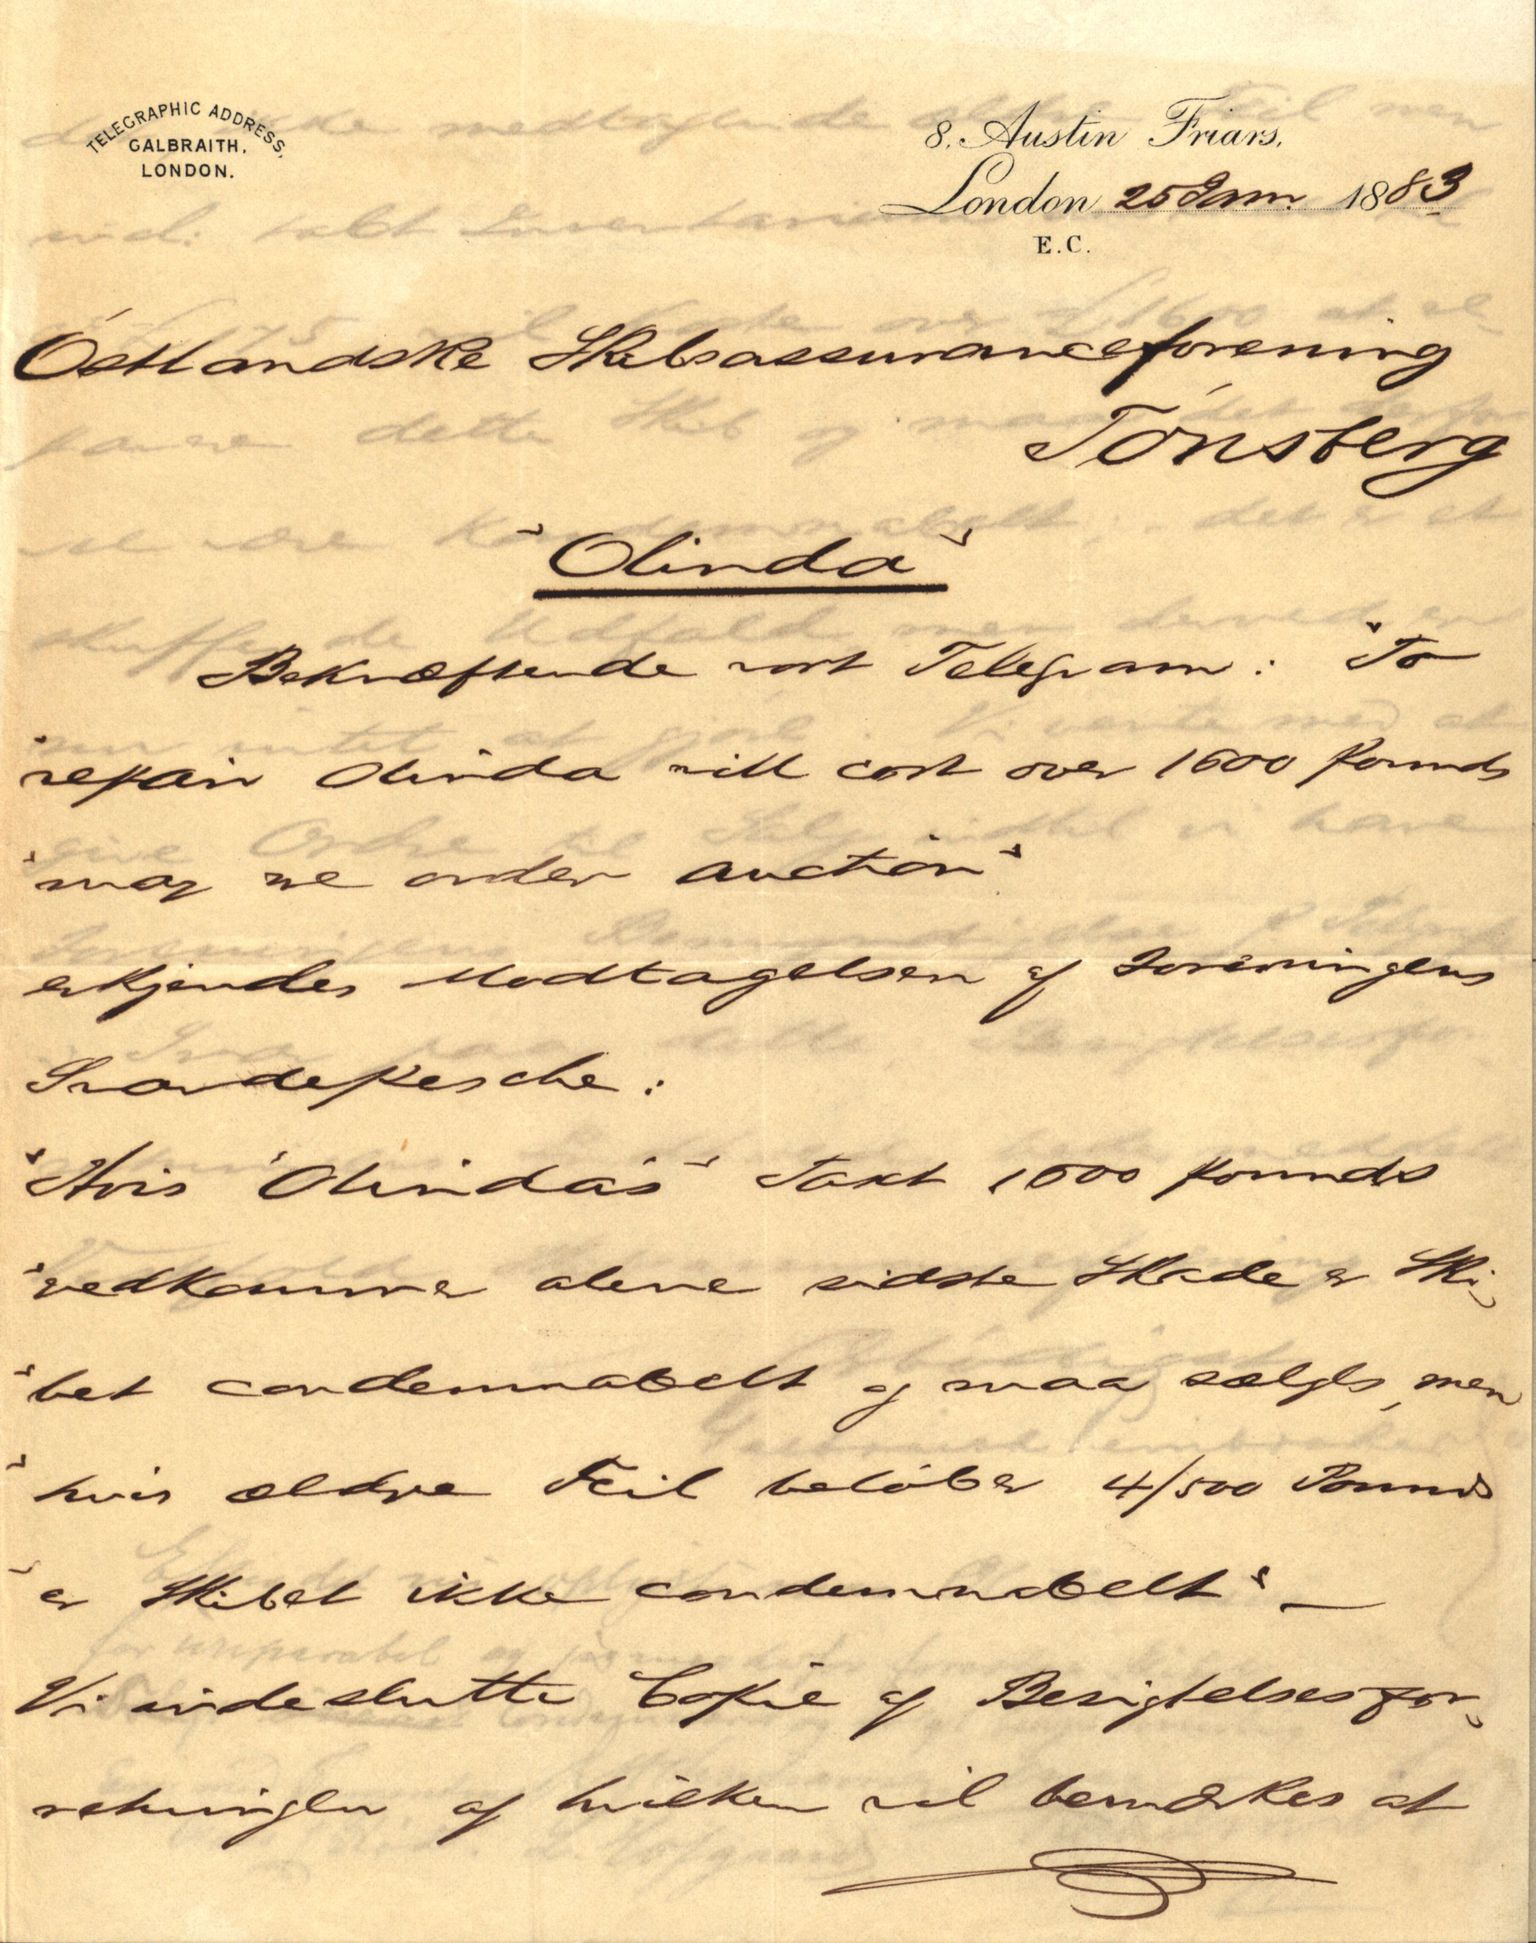 TELEGRAPHIC ADDRESS,
GALBRAITH,
LONDON.
8, Austin Friars,
London 25 Jan. 1883
E.C.
Östlandske Skibsassuranceforening
Tönsberg
"Olinda"
Bekræftende vort Telegram: "To
"repair Olinda will cost over 1600 pounds
"may we order auction"
erkjendes Modtagelsen af Foreningens
Svardepesche:
"Hvis 'Olinda's' Taxt 1600 pounds
"vedkommer alene sidste Skade er Ski,
"bet condemnabelt og maa sælges, men
"hvis ældre Feil belöber 4/500 Pounds
"er Skibet ikke condemnabelt" —
Vi indeslutte Copie af Besigtelsesfor,
retningen af hvilken vil bemærkes at